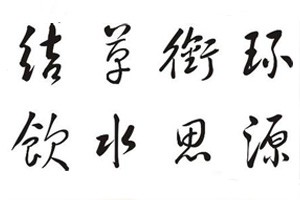 结草衔环
飲水思源